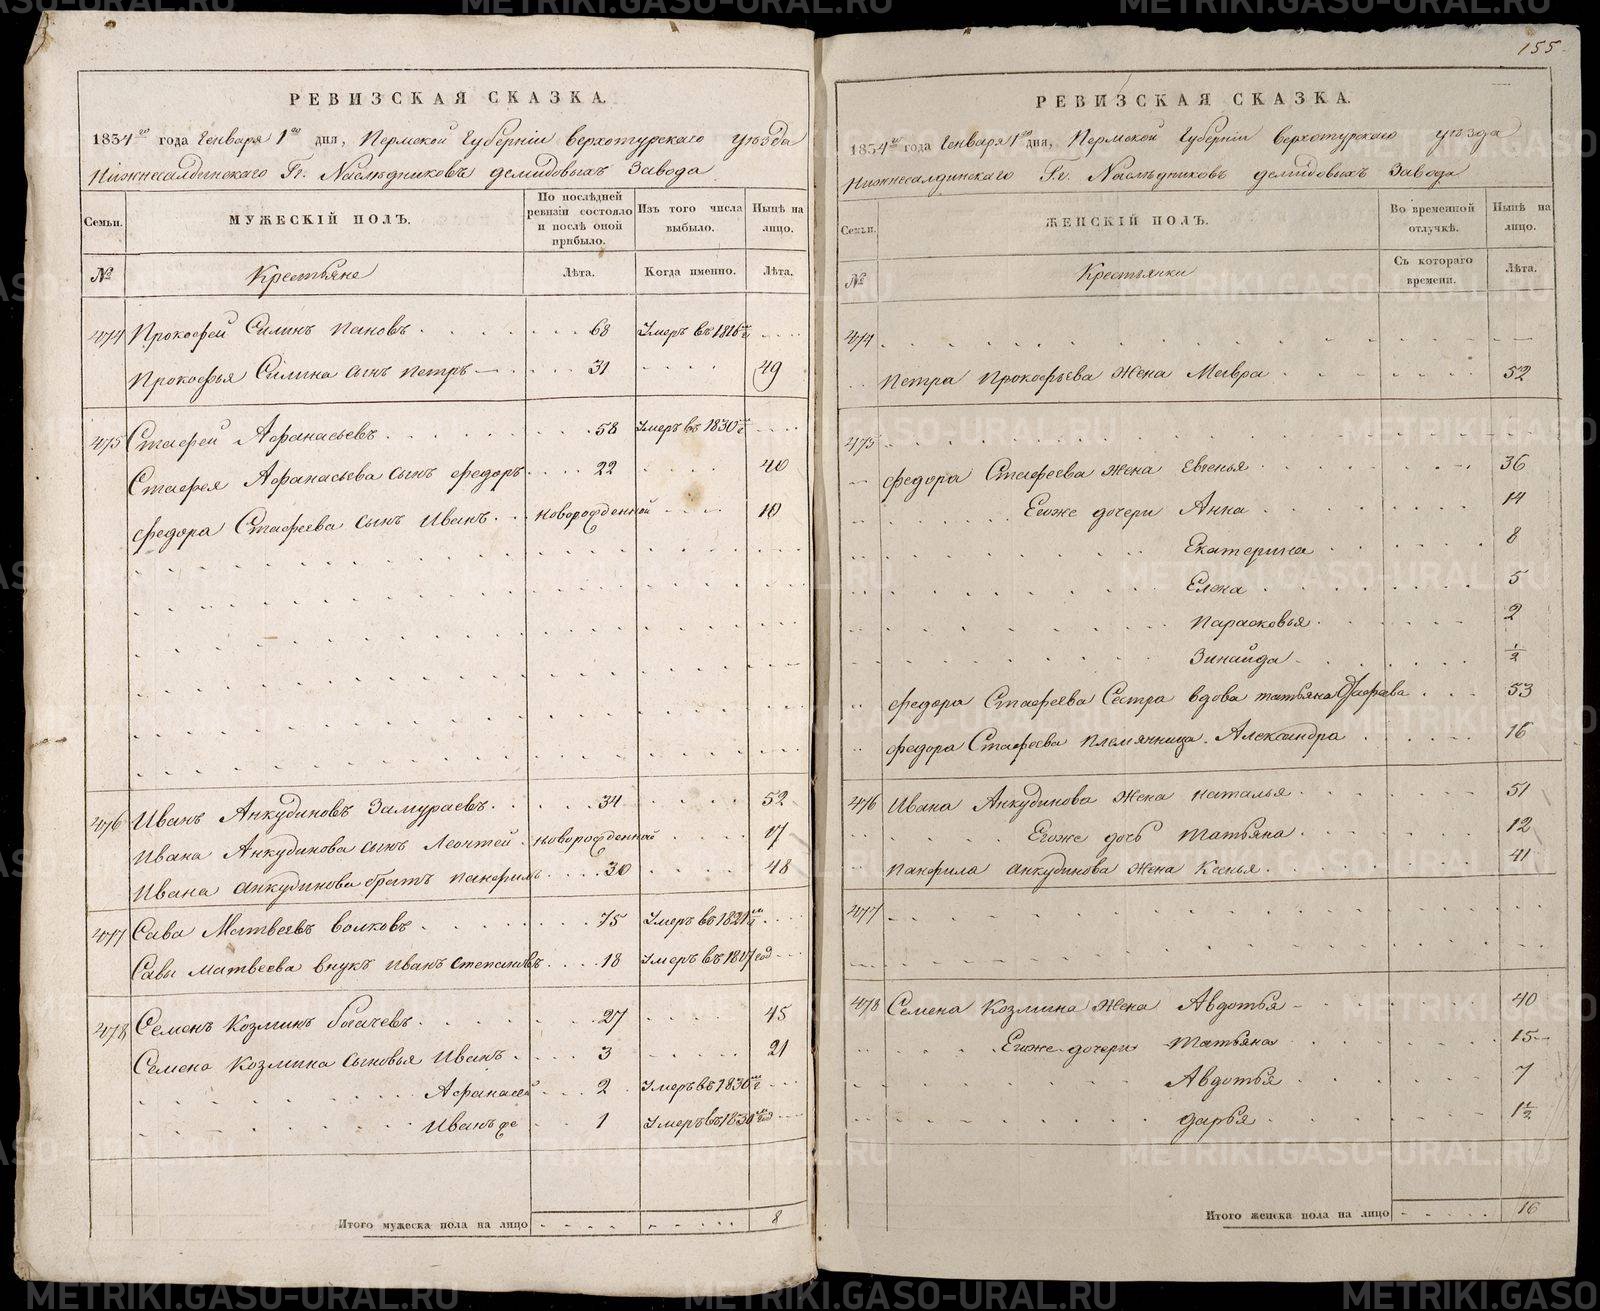 155
РЕВИЗСКАЯ СКАЗКА.
1834го года Генваря 1го дня, Пермской Губерніи Верхотурскаго уѣзда
Нижнесалдинскаго Гг. Наслѣдниковъ Демидовыхъ Завода
Семьи.
МУЖЕСКІЙ ПОЛЪ.
По послѣдней ревизіи состояло и послѣ оной прибыло.
Изъ того числа выбыло.
Нынѣ на лицо.
№
Крестьяне
Лѣта.
Когда именно.
Лѣта.
474 Прокофей Силинъ Пановъ 68 Умеръ въ 1816м
Прокофья Силина сынъ Петръ 31 49
475 Стафей Афанасьевъ 58 Умеръ въ 1830м
Стафея Афанасьева сынъ Федоръ 22 40
Федора Стафеева сынъ Иванъ новорожденной 10
476 Иванъ Анкудиновъ Замураевъ 34 52
Ивана Анкудинова сынъ Леонтей новорожденной 17
Ивана Анкудинова братъ Панфилъ 30 48
477 Сава Матвеевъ Волковъ 75 Умеръ въ 1821м
Савы Матвеева внукъ Иванъ Степановъ 18 Умеръ въ 1817 год
478 Семенъ Козминъ Богачевъ 27 45
Семена Козмина сыновья Иванъ 3 21
Афанасей 2 Умеръ въ 1830м
Иванъ же 1 Умеръ въ 1830м год
Итого мужеска пола на лицо 8
РЕВИЗСКАЯ СКАЗКА.
1834го года Генваря 1го дня, Пермской Губерніи Верхотурскаго уѣзда
Нижнесалдинскаго Гг. Наслѣдниковъ Демидовыхъ Завода
Семьи.
ЖЕНСКІЙ ПОЛЪ.
Во временной отлучкѣ.
Нынѣ на лицо.
№
Крестьянки
Съ котораго времени.
Лѣта.
474
Петра Прокофьева жена Мавра 52
475
Федора Стафеева жена Евгенья 36
Егоже дочери Анна 14
Екатерина 8
Елена 5
Парасковья 2
Зинаида 1/2
Федора Стафеева Сестра вдова татьяна Стафеева 53
Федора Стафеева племянница Александра 16
476 Ивана Анкудинова жена Наталья 51
Егоже дочь Татьяна 12
Панфила Анкудинова жена Ксенья 41
477
478 Семена Козмина жена Авдотья 40
Егоже дочери Татьяна 15
Авдотья 7
Дарья 1 1/2
Итого женска пола на лицо 16
METRIKI.GASO-URAL.RU